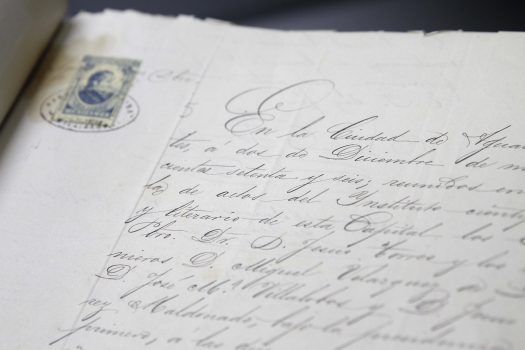 En la Ciudad de Agua
tes, á dos de Diciembre de mi
cientos setenta y seis, reunidos en
la de actos del Instituto cientí
y literario de esta Capital los
Pbro. Dr. D. Jesus Torres y los
nieros D. Miguel Velazquez de
D. José Mª Villalobos y D. Juan
rey Maldonado, bajo la presidencia
primero, á las